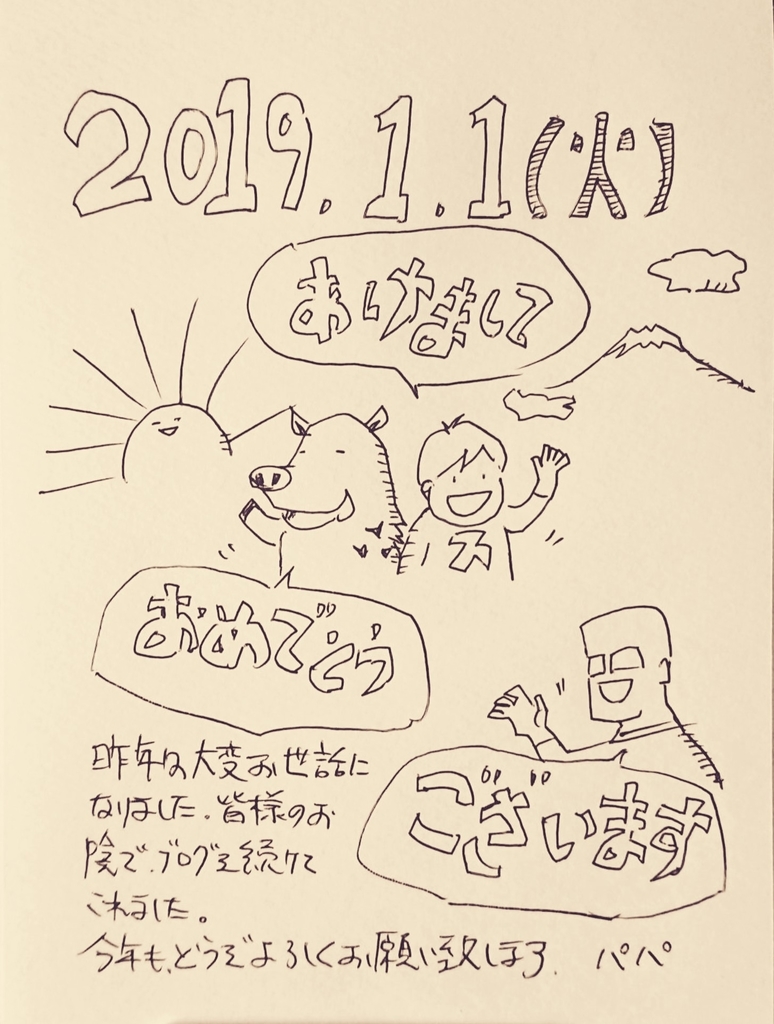 2019.1.1(火)
あけまして
ス
おめでとう
ございます
昨年は大変お世話に
なりました。皆様のお
陰で、ブログを続けて
これました。
今年も、どうぞよろしくお願い致します。 パパ